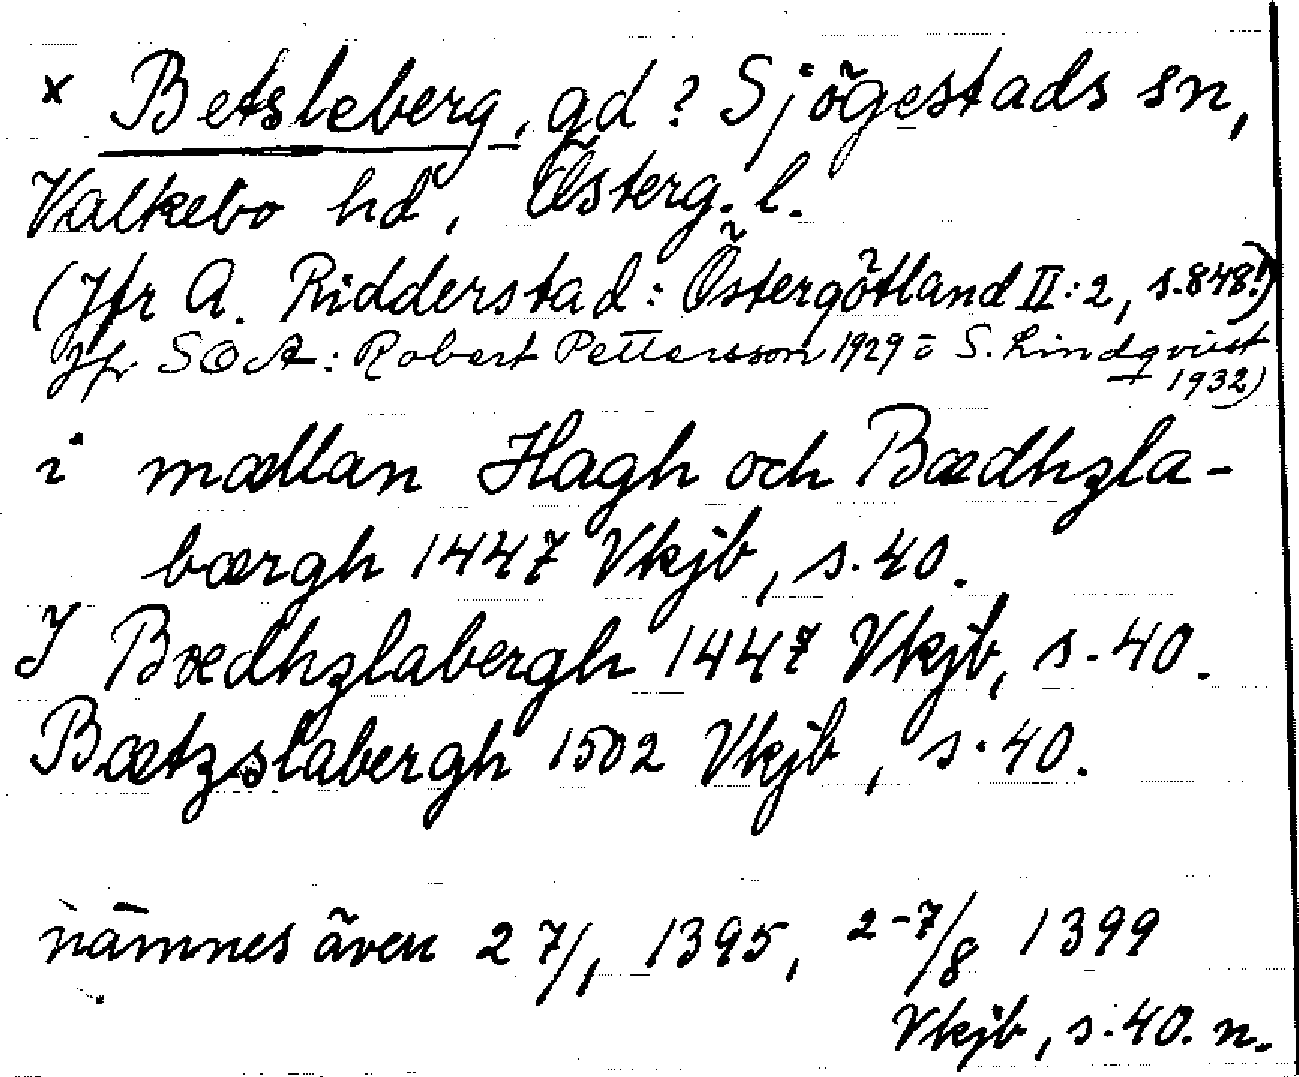 x Betsleberg, gd? Sjögestads sn,
Valkebo hd, Österg. l.
(Jfr A. Ridderstad: Östergötland II:2, s.848!)
Jfr SOA: Robert Pettersson 1929 o S. Lindqvist
1932)
i mællan Hagh och Bædhzla-
bærgh 1447 Vkjb, s.40.
I Bædhzlabergh 1447 Vkjb, s.40.
Bætzslabergh 1502 Vkjb, s.40.
nämnes även 27/1 1395, 2-7/8 1399
Vkjb, s.40. n.